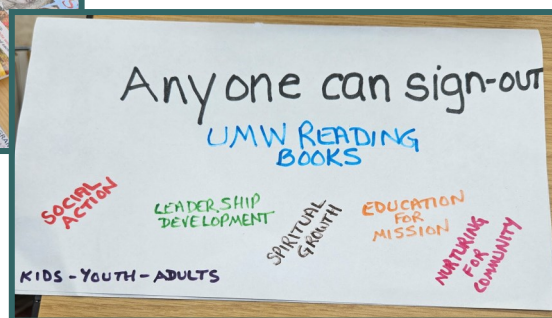 Anyone can sign-out
UMW READING
BOOKS
SOCIAL
ACTION
LEADERSHIP
DEVELOPMENT
SPIRITUAL
GROWTH
EDUCATION
FOR
MISSION
NURTURING
FOR
COMMUNITY
KIDS - YOUTH - ADULTS